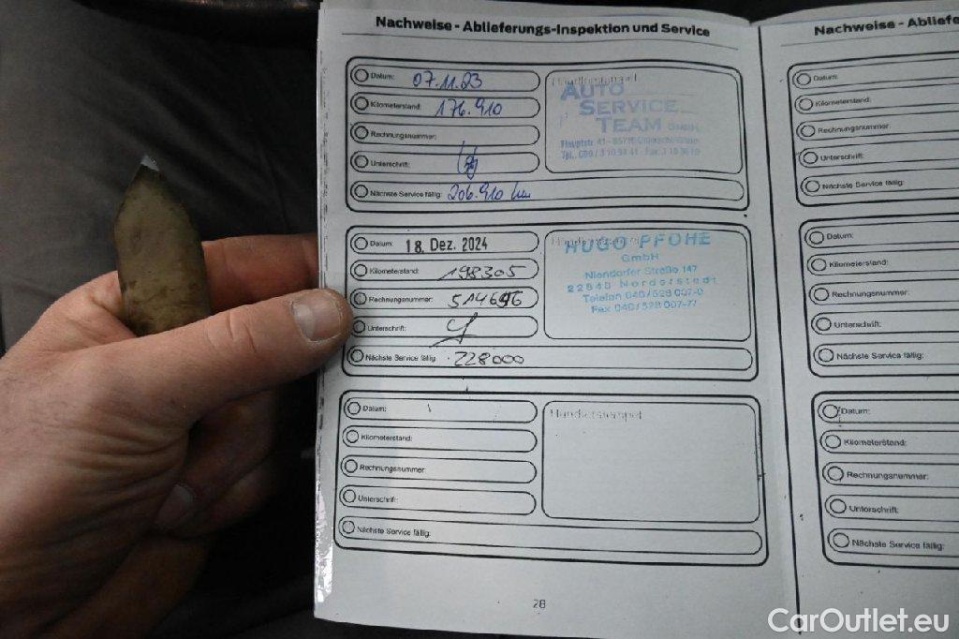 Nachweise - Ablieferungs-Inspektion und Service
Datum: 07.11.23
Kilometerstand: 176.910
Rechnungsnummer:
Unterschrift:
Nächste Service fällig: 206.910 km
Händlerstempel
AUTO
SERVICE
TEAM GmbH
Datum: 18 Dez. 2024
Kilometerstand: 198305
Rechnungsnummer:
Unterschrift:
Nächste Service fällig: 228000
HUGO PFOHE
GmbH
Niendorfer Straße 147
22848 Norderstedt
Telefon 040/528 007-0
Fax 040/528 007-77
Datum:
Kilometerstand:
Rechnungsnummer
Unterschrift:
Nächste Service fällig:
Händlerstempel
28
Nachweise - Abliefe
Datum:
Kilometerstand:
Rechnungsnummer
Unterschrift:
Nächste Service fällig:
Datum:
Kilometerstand:
Rechnungsnummer:
Unterschrift:
Nächste Service fällig:
Datum:
Kilometerstand:
Rechnungsnummer:
Unterschrift:
Nächste Service fällig:
CarOutlet.eu